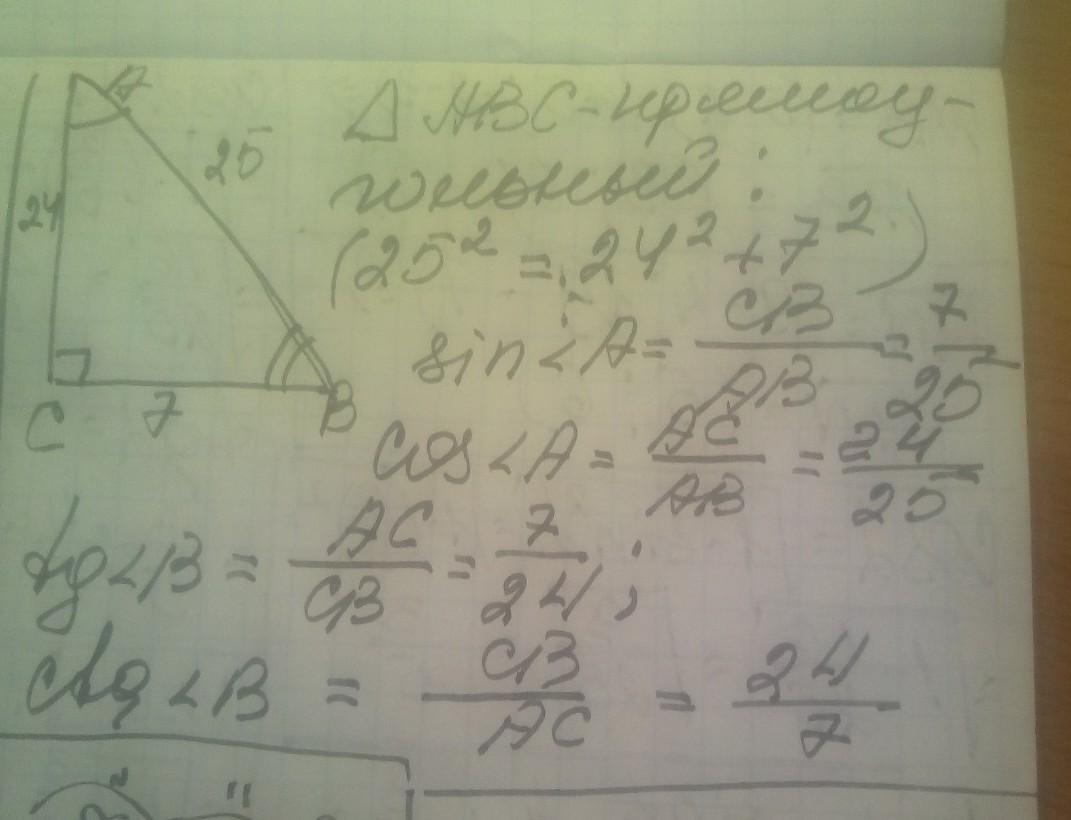 A
25
24
C
7
B
△ ABC - прямоу-
гольный :
(25² = 24² + 7²)
sin ∠A = CB/AB = 7/25
cos ∠A = AC/AB = 24/25
tg ∠B = AC/CB = 7/24 ;
ctg ∠B = CB/AC = 24/7